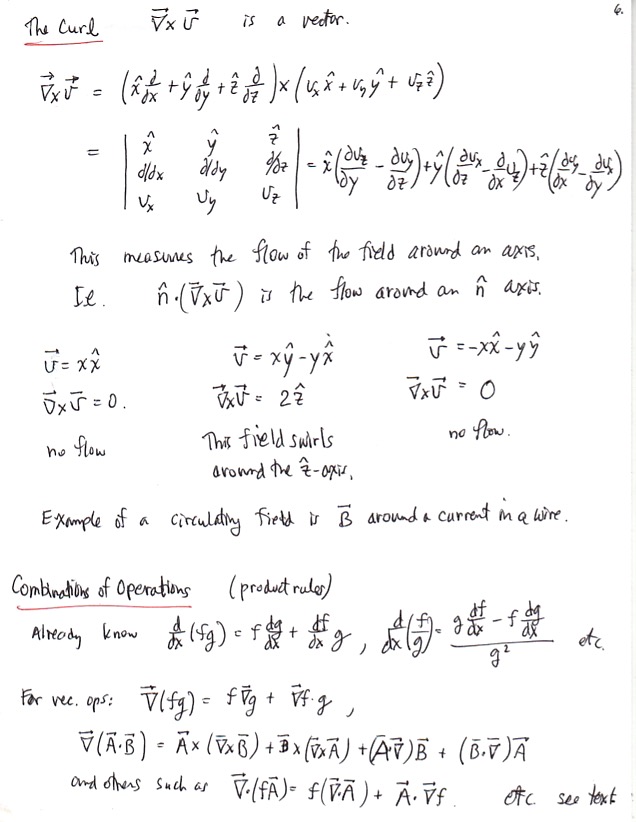 6.
The Curl ∇⃗×v⃗ is a vector.
∇⃗×v⃗ = (x̂ d/dx + ŷ d/dy + ẑ d/dz) × (vₓx̂ + v_yŷ + v_zẑ)
= | x̂ ŷ ẑ | = x̂(∂v_z/∂y − ∂v_y/∂z) + ŷ(∂vₓ/∂z − ∂v_z/∂x) + ẑ(∂v_y/∂x − ∂vₓ/∂y)
| d/dx d/dy d/dz |
| vₓ v_y v_z |
This measures the flow of the field around an axis.
I.e. n̂·(∇⃗×v⃗) is the flow around an n̂ axis.
v⃗ = xx̂ v⃗ = xŷ − yx̂ v⃗ = −xx̂ − yŷ
∇⃗×v⃗ = 0. ∇⃗×v⃗ = 2ẑ ∇⃗×v⃗ = 0
no flow This field swirls no flow.
around the ẑ-axis.
Example of a circulating field is B⃗ around a current in a wire.
Combinations of Operations (product rules)
Already know d/dx (fg) = f dg/dx + df/dx g , d/dx (f/g) = (g df/dx − f dg/dx)/g² etc.
For vec. ops: ∇⃗(fg) = f∇⃗g + ∇⃗f·g ,
∇⃗(A⃗·B⃗) = A⃗×(∇⃗×B⃗) + B⃗×(∇⃗×A⃗) + (A⃗·∇⃗)B⃗ + (B⃗·∇⃗)A⃗
and others such as ∇⃗·(fA⃗) = f(∇⃗·A⃗) + A⃗·∇⃗f. etc. see text